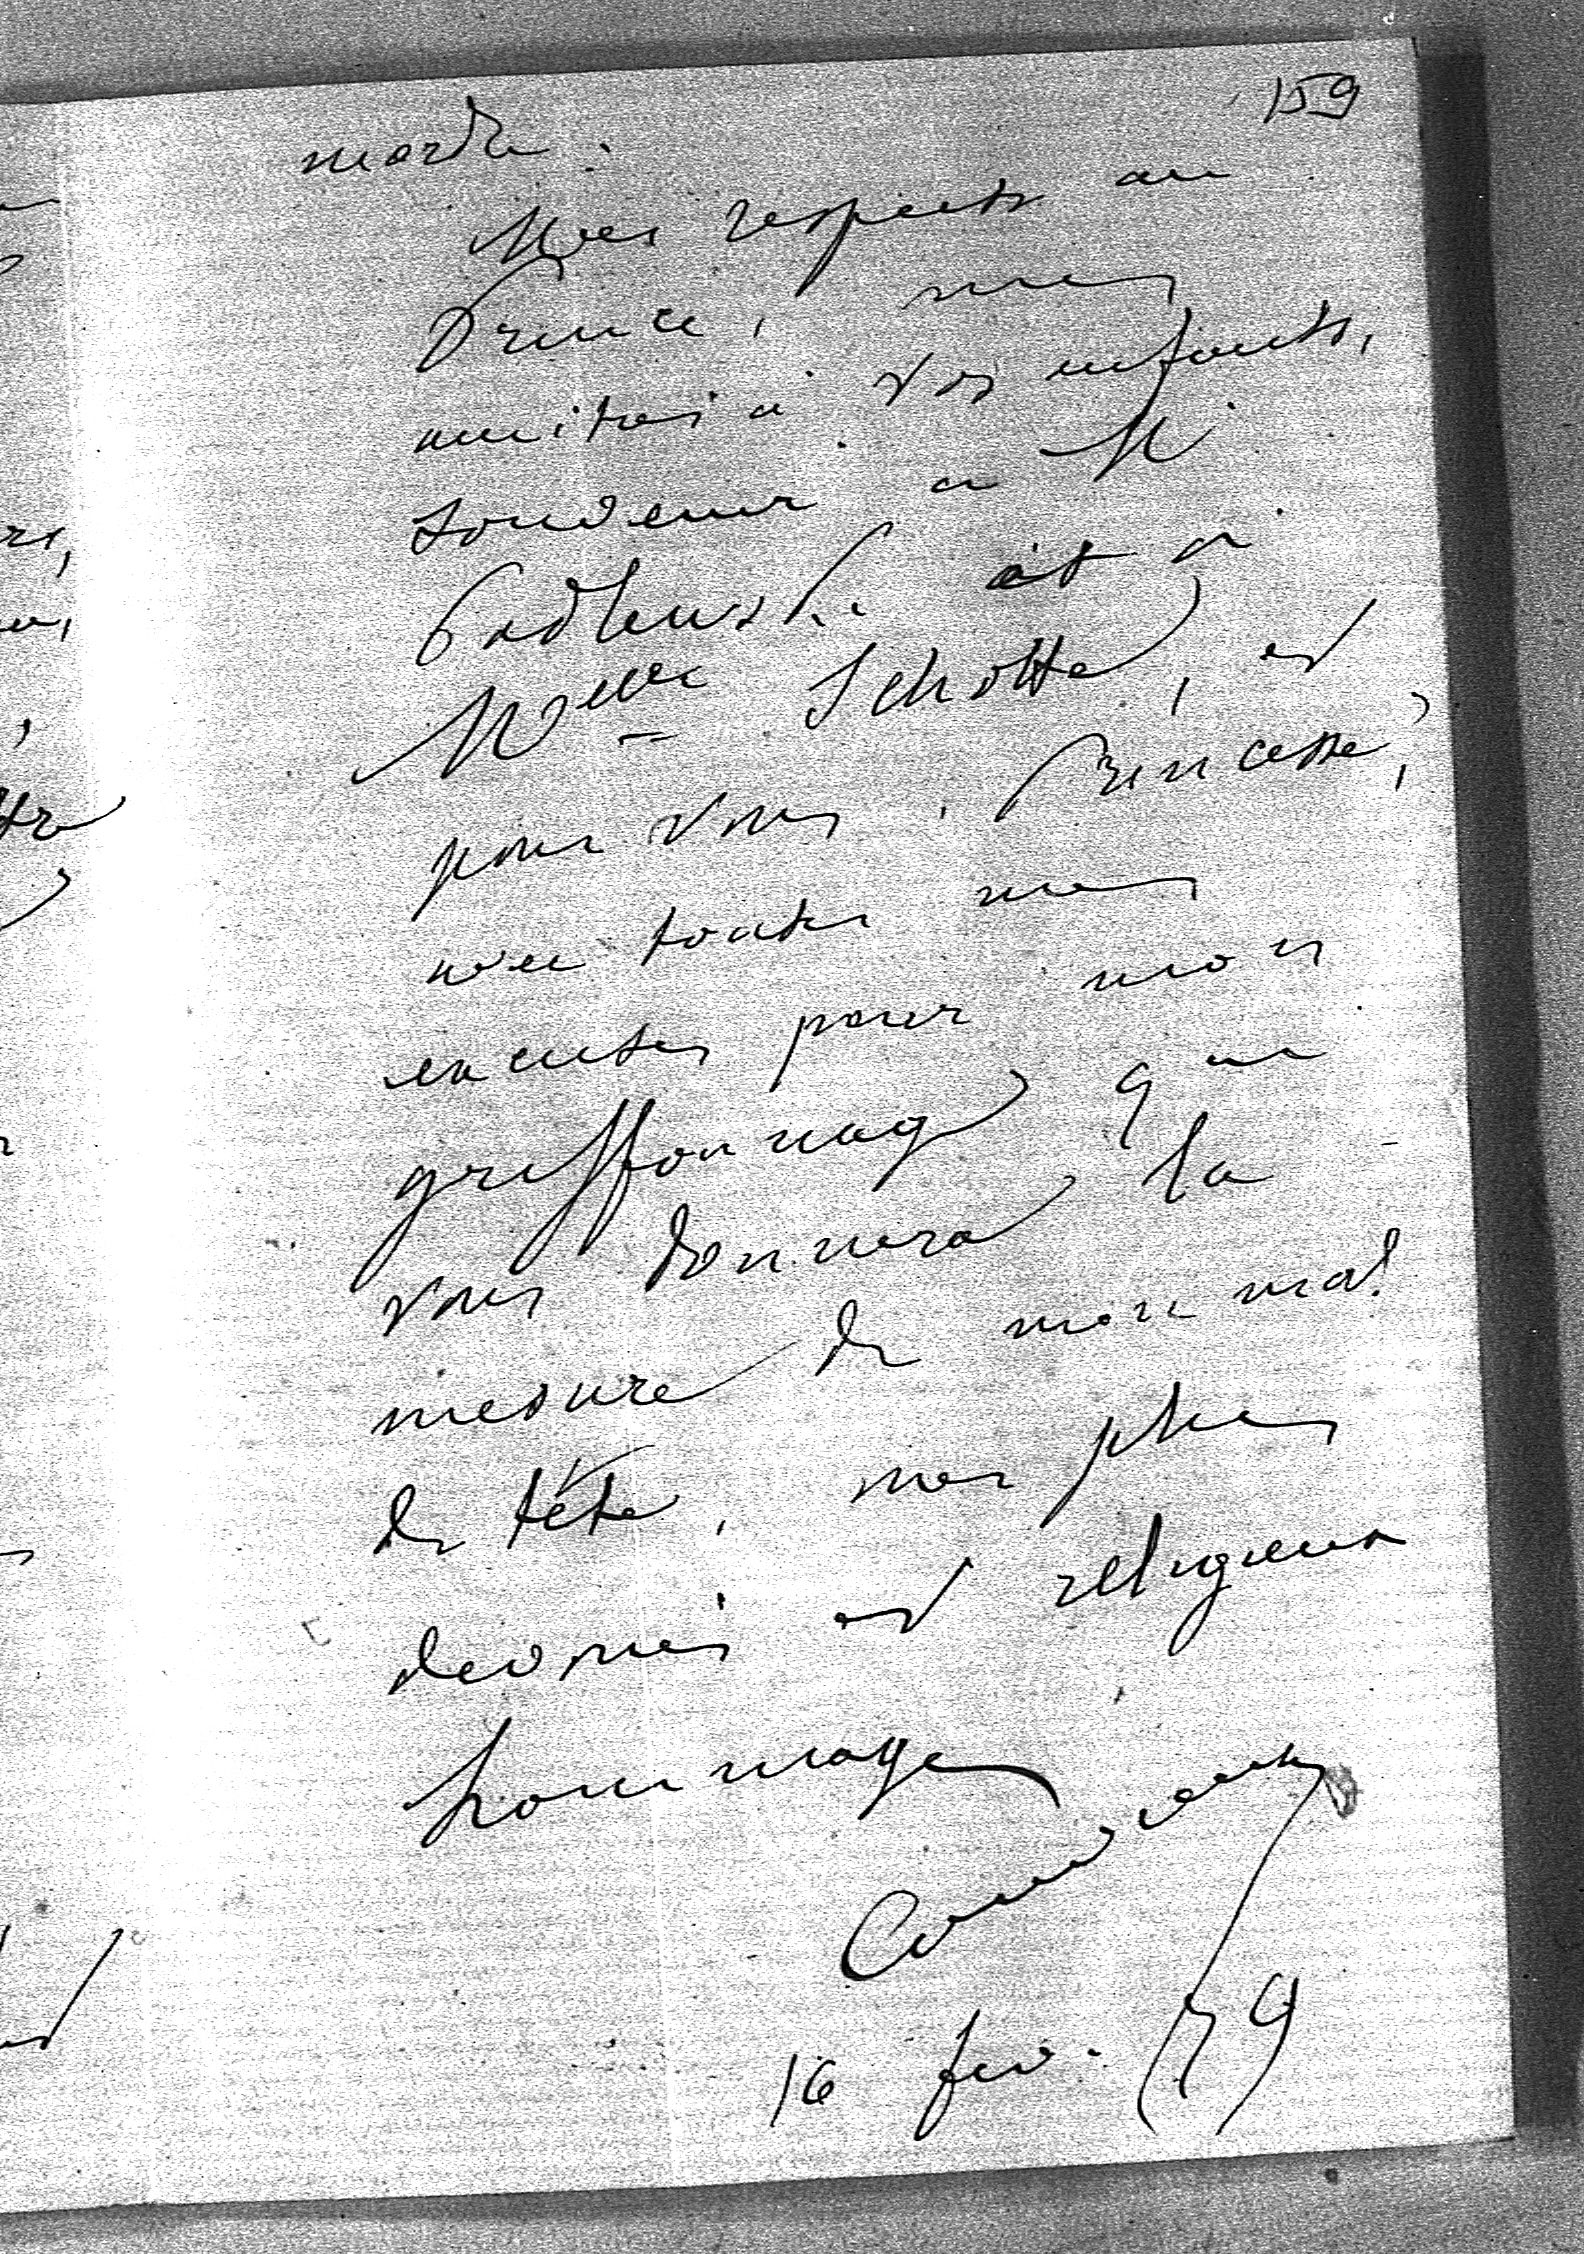 159
mordre.
Mes respects au
Prince, mes
amitiés à vos enfants,
souvenir à M.
Podlewski et à
Melle Scholtte, et
pour vous, Princesse,
avec toutes mes
excuses pour mon
griffonnage que
vous donnera la
mesure de mon mal
de tête, mes plus
devoués et religieux
hommages
16 fev. 79